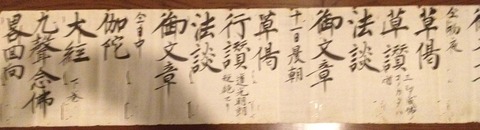 仝 初夜
草偈
草讃
法談
御文章
十二日晨朝
草偈
行讃
法談
御文章
仝 日中
伽陀
大經 一巻
九聲念佛
畧回向